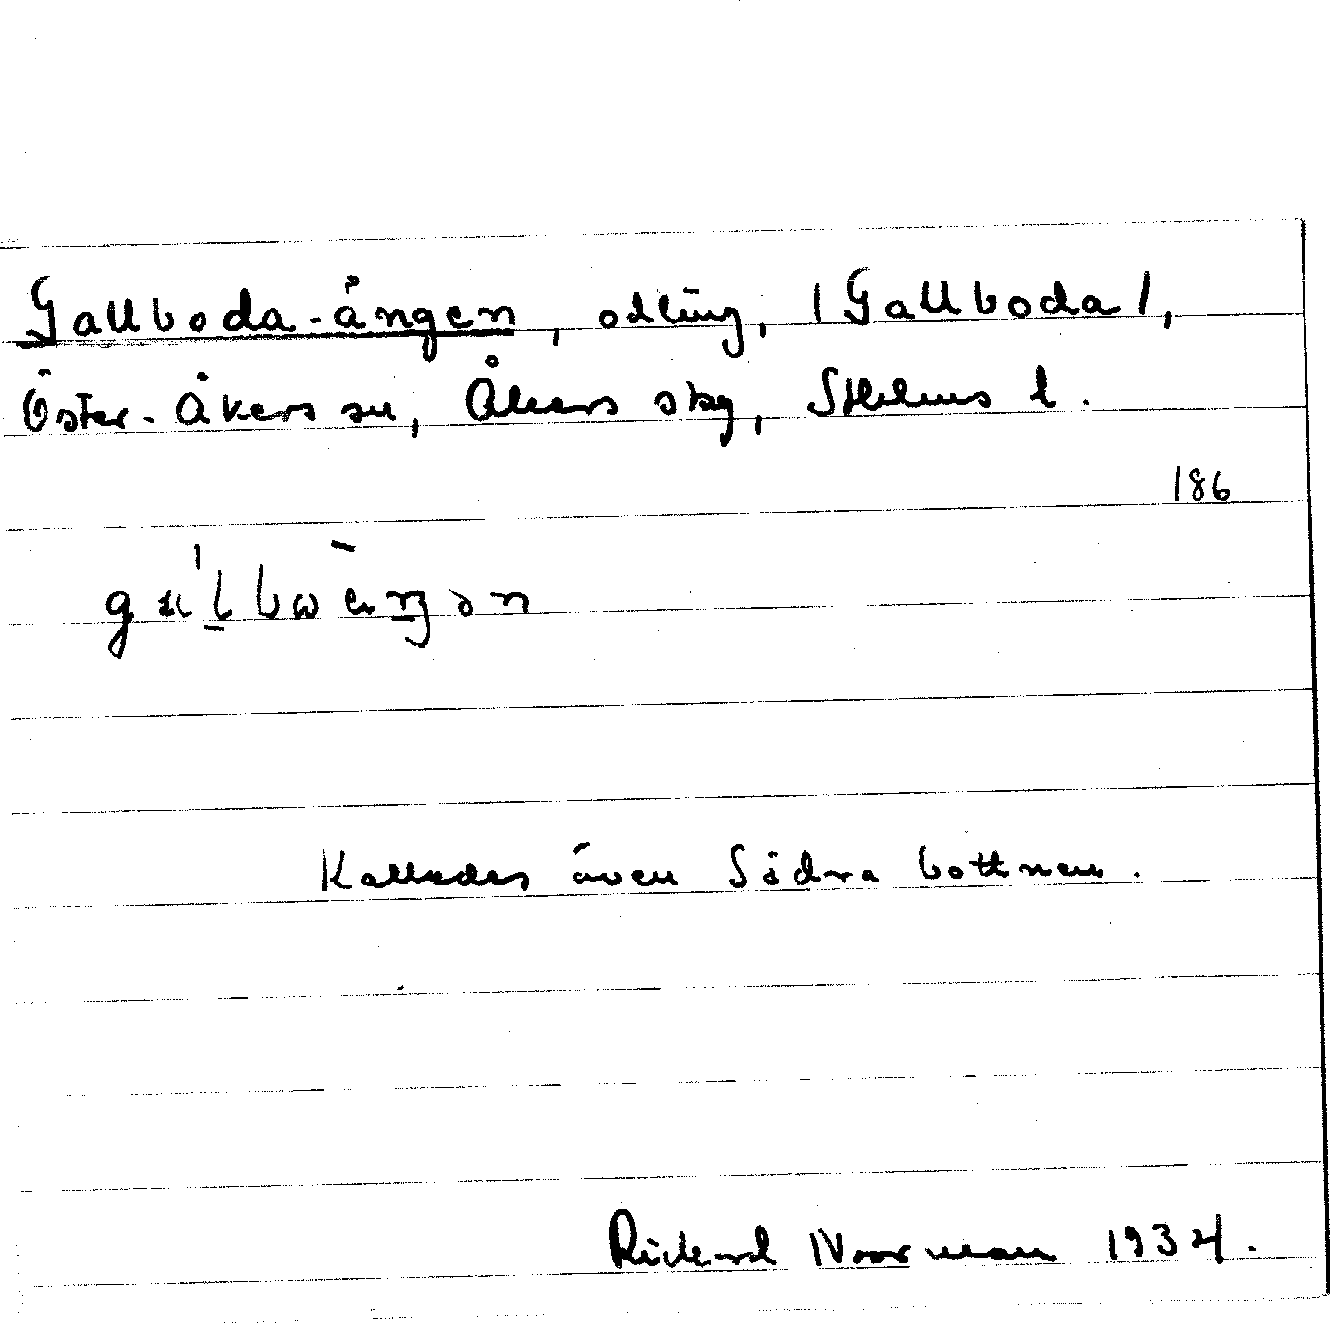 Gallboda-ängen, odling, /Gallboda/,
Öster-Åkers sn, Åkers skg, Sthlms l.
186
Kallades även Södra bottnen.
Rickard Noorman 1934.